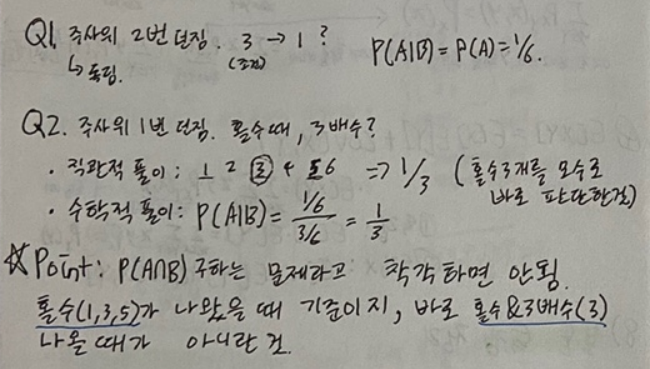 Q1. 주사위 2번 던짐. 3 → 1 ? P(A|B) = P(A) = 1/6.
↳ 독립. (조건)
Q2. 주사위 1번 던짐. 홀수때, 3배수?
• 직관적 풀이 : 1 2 ③ 4 5 6 => 1/3 (홀수3개를 모수로
바로 판단한것)
• 수학적 풀이: P(A|B) = (1/6)/(3/6) = 1/3
☆ Point : P(A∩B) 구하는 문제라고 착각하면 안됨.
홀수(1,3,5)가 나왔을 때 기준이지, 바로 홀수&3배수(3)
나올 때가 아니란 것.